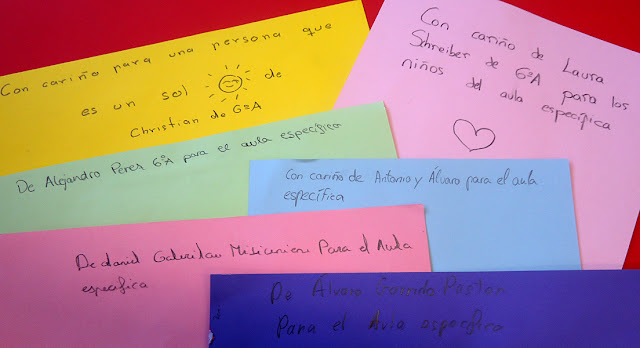 Con cariño para una persona que
es un sol de
Christian de 6ºA
Con cariño de Laura
Schreiber de 6ºA para los
niños del aula específica
De Alejandro Pérez 6ºA para el aula específica
Con cariño de Antonio y Álvaro para el aula
específica
De daniel Para el Aula
especifica
De Álvaro
Para el Avla específica